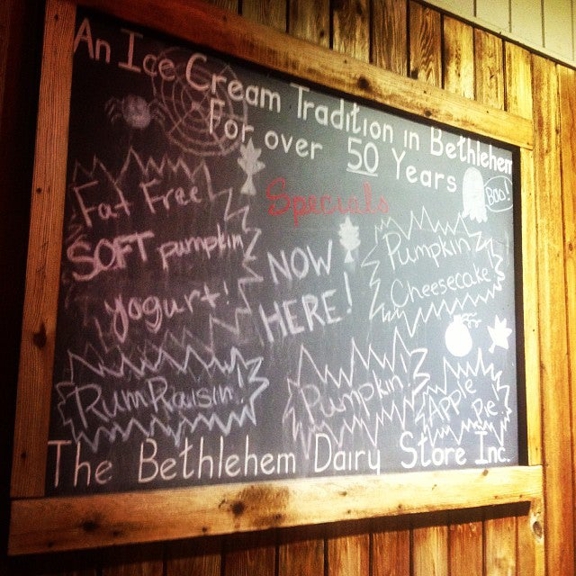 An Ice Cream Tradition in Bethlehem
For over 50 Years
Boo!
Specials
Fat Free
SOFT pumpkin
yogurt!
NOW
HERE!
Pumpkin
Cheesecake
Rum Raisin!
Pumpkin!
Apple
Pie
The Bethlehem Dairy Store Inc.